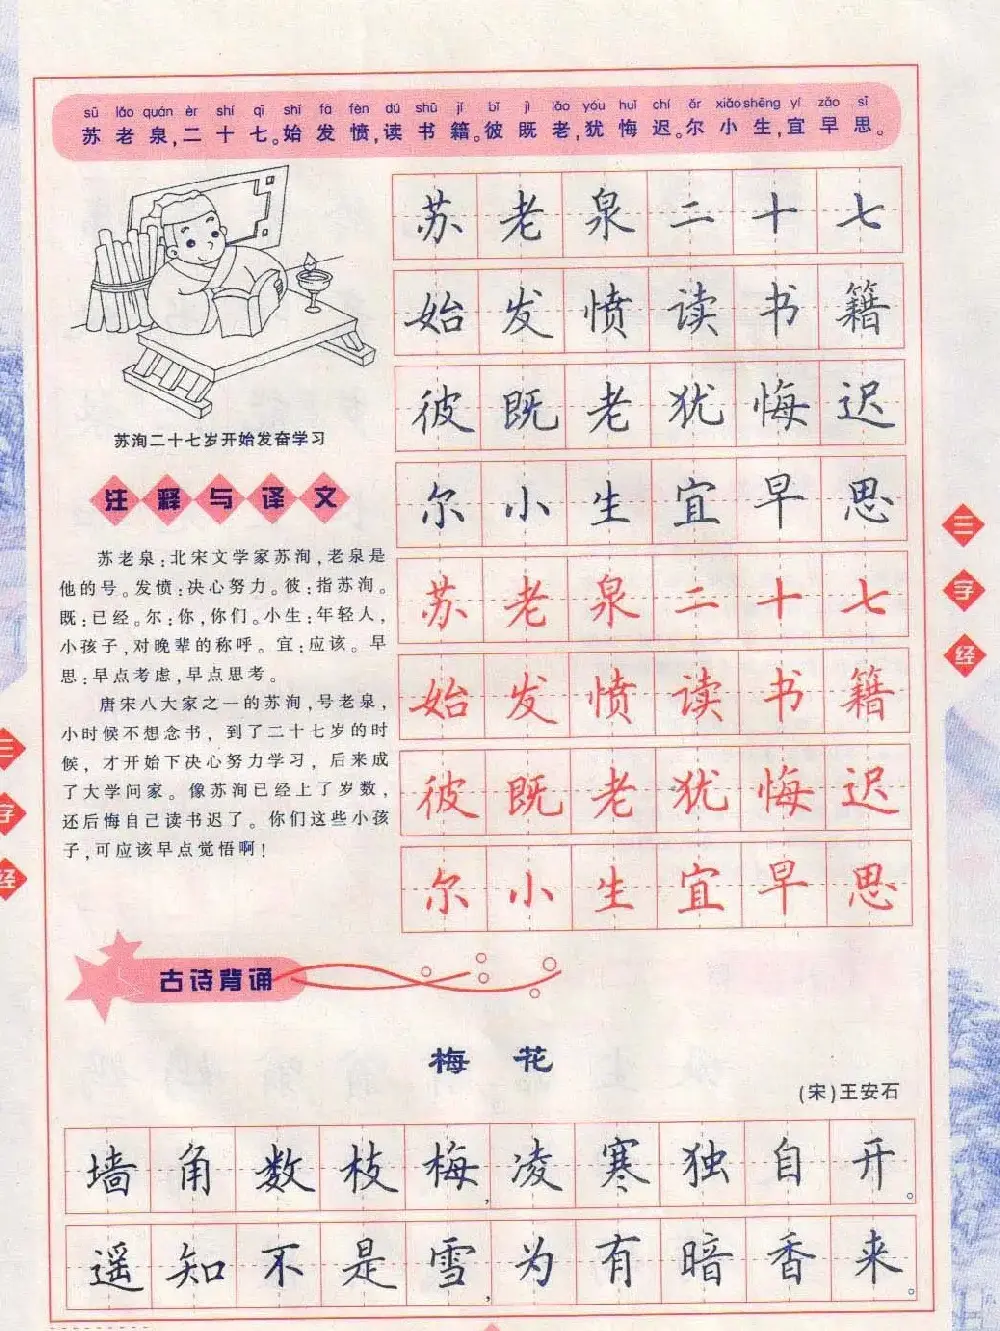 sū lǎo quán èr shí qī shǐ fā fèn dú shū jí bǐ jì lǎo yóu huǐ chí ěr xiǎo shēng yí zǎo sī
苏老泉,二十七。始发愤,读书籍。彼既老,犹悔迟。尔小生,宜早思。
苏洵二十七岁开始发奋学习
注释与译文
苏老泉:北宋文学家苏洵,老泉是
他的号。发愤:决心努力。彼:指苏洵。
既:已经。尔:你,你们。小生:年轻人,
小孩子,对晚辈的称呼。宜:应该。早
思:早点考虑,早点思考。
唐宋八大家之一的苏洵,号老泉,
小时候不想念书,到了二十七岁的时
候,才开始下决心努力学习,后来成
了大学问家。像苏洵已经上了岁数,
还后悔自己读书迟了。你们这些小孩
子,可应该早点觉悟啊!
苏老泉二十七
始发愤读书籍
彼既老犹悔迟
尔小生宜早思
苏老泉二十七
始发愤读书籍
彼既老犹悔迟
尔小生宜早思
三字经
三字经
古诗背诵
梅花
(宋)王安石
墙角数枝梅,凌寒独自开。
遥知不是雪,为有暗香来。